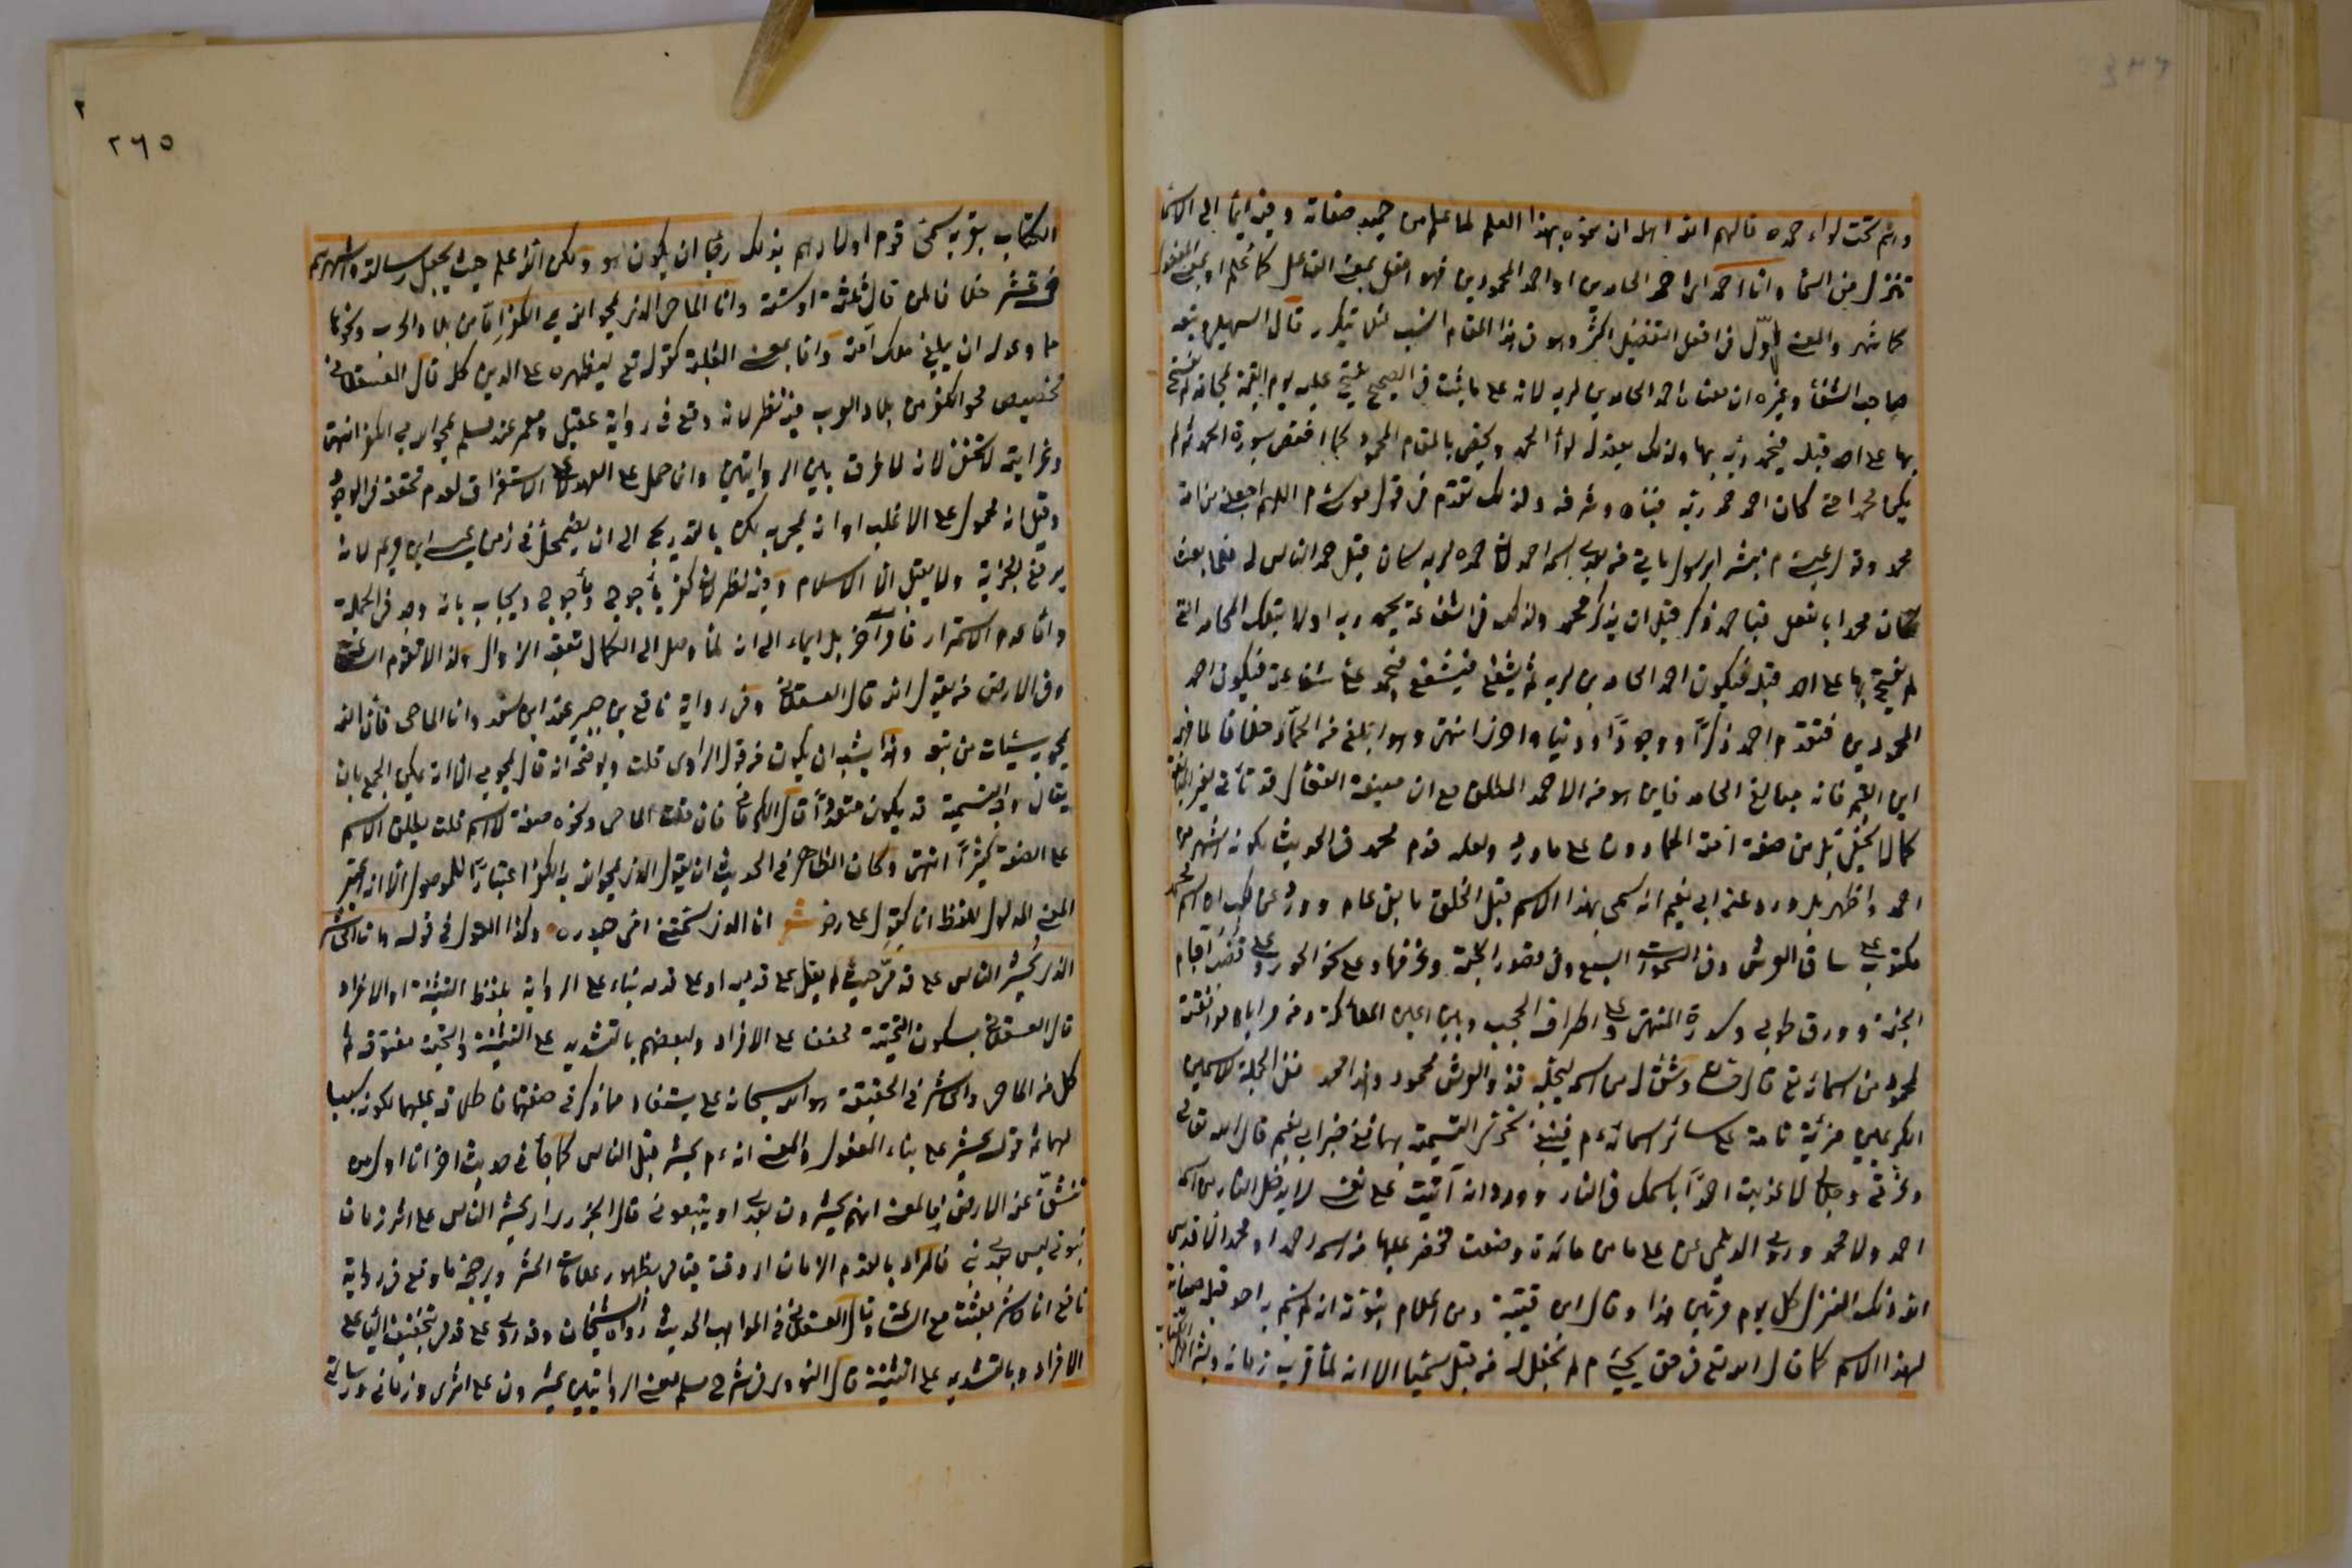 وهم تحت لواء حمده فألهم الله اهله ان سموه بهذا العلم لما علم من حميد صفاته وفيه ايماء الى الاسماء
تنزل من السماء وانا احمد اى احمد الحامدين او احمد المحمودين فهو افعل بمعنى الفاعل كاعلم او بمعنى المفعول
كاشهر والمعنى الاول فى افعل التفضيل اكثر وهو فى هذا المقام انسب لئلا يتكرر قال السهيلى وتبعه
صاحب الشفاء وغيره ان معناه احمد الحامدين لربه لانه على ما ثبت فى الصحيح يفتح عليه يوم القيمة بمحامد لم يفتح
بها على احد قبله فيحمد ربه بها ولذلك يعقد له لواء الحمد ويخص بالمقام المحمود كما اختص بسورة الحمد ثم لم
يكن محمدا حتى كان احمد حمد ربه فنبأه وشرفه ولذلك تقدم فى قول موسى م اللهم اجعلنى من امة
محمد وقول عيسى م مبشرا برسول يأتى من بعدى اسمه احمد لان حمده لربه كان قبل حمد الناس له فلما بعث
كان محمدا بالفعل فباحمد ذكر قبل ان يذكر بمحمد ولذلك فى الشفاعة يحمد ربه اولا بتلك المحامد التى
لم يفتح بها على احد قبله فيكون احمد الحامدين لربه ثم يشفع فيشفع فيحمد على شفاعته فيكون احمد
المحمودين فتقدم احمد ذكرا ووجودا ودنيا واخرى انتهى وهو ابلغ من الحماد خلافا لما فهمه
ابن القيم فانه مبالغ الحامد فاين هو من الاحمد المطلق مع ان صيغة الفعال قد تأتى لغير المبالغة
كما لا يخفى بل من صفة امته الحمادون على ما ورد ولعله قدم محمد فى الحديث لكونه اشهر من
احمد واظهر بل ورد عند ابى نعيم انه سمى بهذا الاسم قبل الخلق بالفى عام وورد عن كعب ان اسم محمد
مكتوب على ساق العرش وفى السموات السبع وفى قصور الجنة وغرفها وعلى نحور الحور وعلى قصب آجام
الجنة وورق طوبى وسدرة المنتهى وعلى اطراف الحجب وبين اعين الملائكة ومن مزاياه موافقته
لمحمود من اسمائه تع قال حسان وشق له من اسمه ليجله فذو العرش محمود وهذا محمد فلهذه الجملة للاسمين
الكريمين مزية تامة على سائر اسمائه م فينبغى تحرى التسمية بهما ففى خبر ابى نعيم قال الله تعالى
وعزتى وجلالى لا عذبت احدا باسمك فى النار وورد انه آليت على نفسى لا يدخل النار من اسمه
احمد ولا محمد وروى الديلمى عن على ما من مائدة وضعت فحضر عليها من اسمه احمد او محمد الا قدس
الله ذلك المنزل كل يوم مرتين هذا وقال ابن قتيبة ومن اعلام نبوته انه لم يسم به احد قبله صيانة
لهذا الاسم كما قال الله تع فى حق يحيى م لم نجعل له من قبل سميا الا انه لما قرب زمانه وبشر اهل
الكتاب بقربه سمى قوم اولادهم بذلك رجاء ان يكون هو ولكن الله اعلم حيث يجعل رسالته واشهرهم
خمسة عشر خلافا لمن قال ثلثة او ستة وانا الماحى الذى يمحو الله بى الكفر اما من بلاد العرب ونحوها
مما وعد له ان يبلغه ملك امته واما بمعنى الغلبة كقوله تع ليظهره على الدين كله قال العسقلانى
تخصيص محو الكفر من بلاد العرب فيه نظر لانه وقع فى رواية عقيل ومعمر عند مسلم يمحو الله بى الكفر انتهى
وغرابته لا تخفى لانه لا فرق بين الروايتين وان حمل على العهد لا على الاستغراق لعدم تحققه فى الوجود
وقيل انه محمول على الاغلب او انه يمحى به لكن بالتدريج الى ان يضمحل فى زمن عيسى ابن مريم لانه
يرفع الجزية ولا يقبل الا الاسلام وفيه نظر لان كفر يأجوج ومأجوج ويجاب بانه وجد فى الجملة
واما عدم الاستمرار فامر آخر بل ايماء الى انه لما وصل الى الكمال تعقبه الزوال ولذا لا تقوم الساعة
وفى الارض من يقول الله قال العسقلانى وفى رواية نافع بن جبير عند ابن سعد وانا الماحى فان الله
يمحو به سيئات من تبعه وهذا يشبه ان يكون من قول الراوى قلت ويوضحه انه قال يمحو بى الا انه يمكن الجمع بان
يقال وجه التسمية قد يكون متعددا قال الكرمانى فان قلت الماحى ونحوه صفة لا اسم قلت يطلق الاسم
على الصفة كثيرا انتهى وكان الظاهر فى الحديث ان يقول الذى يمحو الله به الكفر اعتبارا للموصول الا انه اعتبر
المعنى المدلول للفظ انا كقول على رضه شعر انا الذى سمتنى امى حيدره وكذا القول فى قوله وانا الحاشر
الذى يحشر الناس على قدمى حيث لم يقل على قدميه او على قدمه بناء على الرواية بلفظ التثنية او الافراد
قال العسقلانى بسكون التحتية مخففا على الافراد ولبعضهم بالتشديد على التثنية والتحتية مفتوحة ثم
كل من الماحى والحاشر فى الحقيقة هو الله سبحانه على ما يستفاد مما ذكر فى صفتهما فاطلاقه عليهما لكونه سببا
لهما ثم قوله يحشر على بناء المفعول والمعنى انه م يحشر قبل الناس كما جاء فى حديث آخر انا اول من
تنشق عنه الارض فالمعنى انهم يحشرون بعدى او يتبعونى قال الجزرى اى يحشر الناس على اثر زمان
نبوتى ليس بعدى نبى فالمراد بالقدم الزمان اى وقت قيامى بظهور علامات الحشر ويرجحه ما وقع فى رواية
نافع انا حاشر بعثت مع الساعة وقال العسقلانى فى المواهب الحديث رواه الشيخان وقد روى على قدمى بتخفيف الياء على
الافراد وبالتشديد على التثنية قال النووى فى شرح مسلم معنى الروايتين يحشرون على اثرى وزمانى ورسالتى
٢٦٥